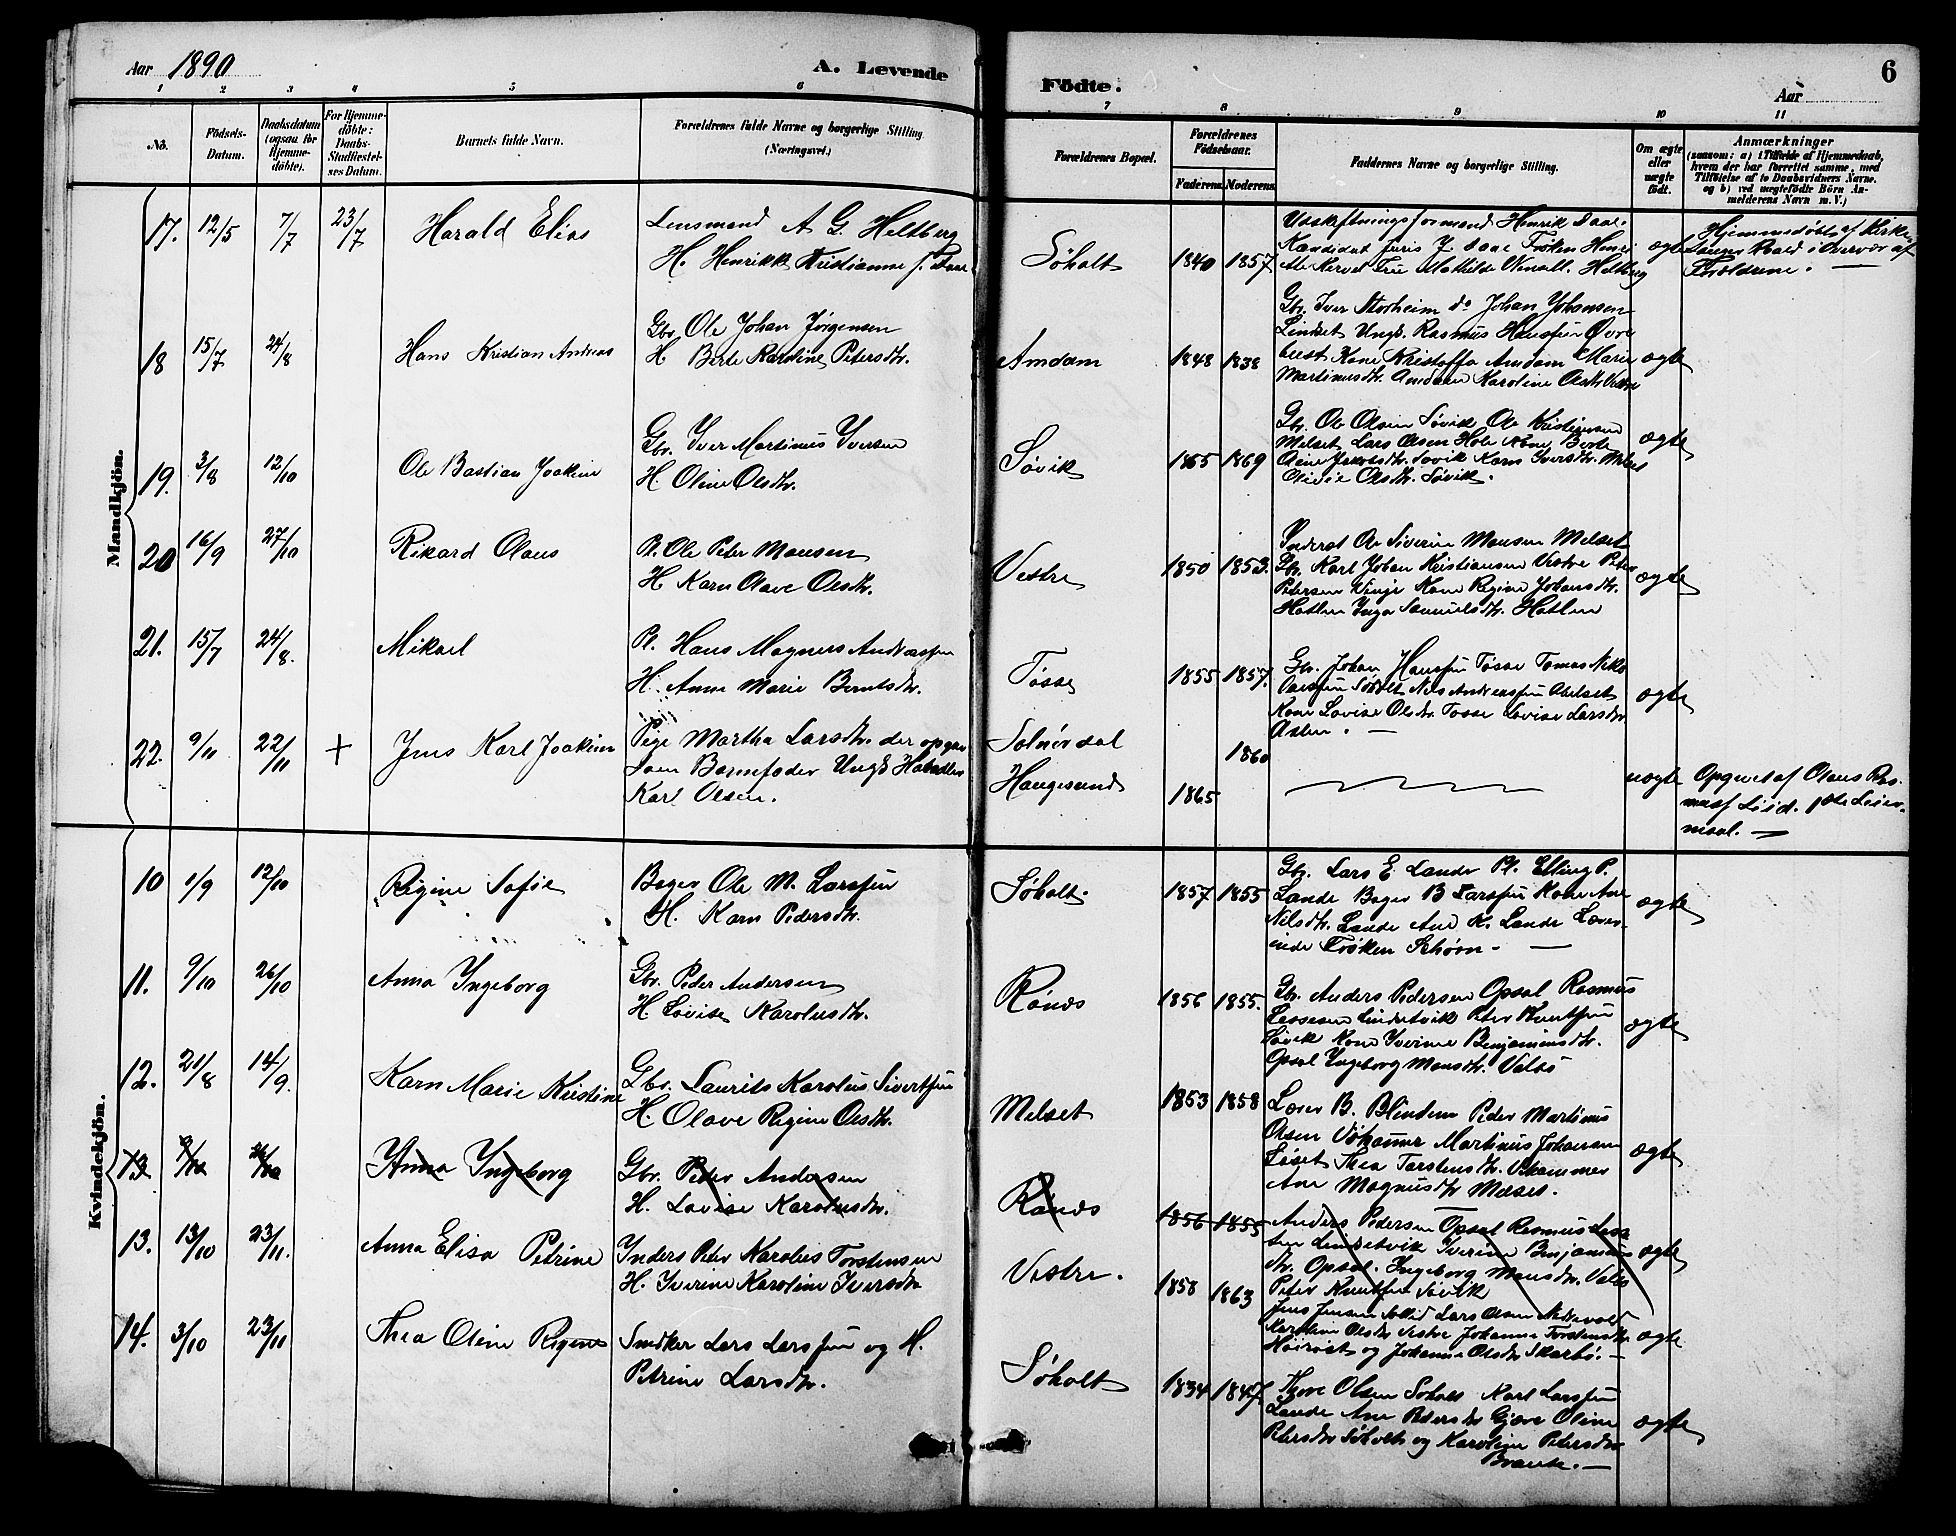 Aar 1890
A. Levende
Födte.
Aar
6
1 2 3 4 5 6 7 8 9 10 11
No.
Födsels-
Datum.
Daabsdatum
(ogsaa for
Hjemme-
døbte).
For Hjemme-
døbte:
Daabs-
Stadfæstel-
ses Datum.
Barnets fulde Navn.
Forældrenes fulde Navne og borgerlige Stilling
(Næringsvei.)
Forældrenes Bopæl.
Forældrenes
Födselsaar.
Faderens Moderens
Faddernes Navne og borgerlige Stilling.
Om ægte
eller
uægte
födt.
Anmærkninger
(saasom: a) i Tilfælde af Hjemmedaab,
hvem der har forrettet samme, med
Tilföielse af to Daabsvidners Navne.
og b) ved uægtefödte Börn An-
melderens Navn m. V.)
Mandkjön.
17. 12/5 7/7 23/7 Harald Elias
Lensmand A G Heltberg
H. Henrikk Kristianne f. Daae
Søholt 1840 1857
Udskiftningsformand Henrik Daae
Kandidat Juris J. Daae Frøken Henri
Fru Mathilde Heltberg
ægte
Hjemmedøbt af Kirke
sanger Roald i Overvær af
Forældrene. —
18 15/7 24/8 Hans Kristian Andreas
Gbr. Ole Johan Jørgensen
H Berte Karoline Petersdtr.
Amdam 1848 1838
Gbr. Iver Storheim do Johan Johansen
Lindset Ungk. Rasmus Hansen Øvre
Kone Kristoffa Amdam Marie
Martinusdtr. Amdam Karoline Olsdtr Vestre
ægte
19. 3/8 12/10 Ole Bastian Joakim
Gbr. Iver Martinus Iversen
H. Oline Olsdtr.
Søvik 1865 1869
Gbr. Ole Olsen Søvik Ole Kristiansen
Melset Lars Olsen Hole Kone Berte
Oline Jakobsdtr. Søvik Karn Iversdtr. Melset
Olivie Olsdtr. Søvik.
ægte
20 16/9 27/10 Rikard Olaus
Pl. Ole Peter Monsen
H Karn Olave Olsdtr.
Vestre 1850 1853.
Inderst Ole Siverin Monsen Melset
Gbr. Karl Johan Kristiansen Vestre Peter
Petersen Vinje Kone Regine Johansdtr.
Hatlen Inga Samuelsdtr. Hatlen
ægte
21. 15/7 24/8. Mikael
Pl. Hans Magnus Andreassen
H. Anne Marie Berntsdtr.
Tøsse 1855 1857.
Gbr. Johan Hansen Tøsse Tomas Niko
laesen Søholt Nils Andreassen Abelset
Kone Lovise Olsdtr. Tøsse Lovise Larsdtr
Aslen. —
ægte
22. 9/11 22/11 + Jens Karl Joakim
Pige Martha Larsdtr. der opgav
som Barnefader Ungk
Karl Olsen.
Solnørdal 1860
Haugesund 1865
uægte
Opgivet af Olaus Ras-
mussen Liid. 1ste Leier-
maal. —
Kvindekjön.
10 1/9 12/10 Regine Sofie
Bager Ole M. Larssen
H. Karn Pedersdtr.
Søholt. 1857 1855
Gbr. Lars E. Lande Pl. Elling P.
Lande Bager B Larssen Kone Ane
Nilsdtr. Lande Ane K. Lande Lærer-
inde Frøken Schørn. —
ægte
11. 9/10 26/10 Anna Ingeborg
Gbr. Peder Andersen
H Lovise Karolusdtr.
Rønds 1856 1855.
Gbr. Anders Pedersen Opsal Rasmus
Lassesen Lindsetvik Peter Knutsen
Søvik Kone Iverine Benjaminsdtr.
Opsal Ingeborg Monsdtr. Valbø
ægte
12. 21/8 14/9. Karn Marie Kristine
Gbr. Laurits Karolus Sivertsen
H. Olave Regine Olsdtr.
Melset 1863 1858
Lærer B. Blindem Peder Martinus
Olsen Vehammer Martinus Johansen
Løset Thea Torstensdtr. Vehammer
Ane Magnusdtr Melset.
ægte
13 9/10 26/10 Anna Ingeborg
Gbr. Peder Andersen
H. Lovise Karolusdtr.
Rønds 1856 1855
Anders Pedersen Opsal Rasmus Lasse
sen Lindsetvik Iverine Benjamins
dtr. Opsal. Ingeborg Monsdtr. Valbø
Peter Knutsen Søvik
ægte
13. 13/10 23/11. Anna Elisa Petrine
Inders Peter Karolus Torstensen
H. Iverine Karoline Iversdtr
Vestre. 1858 1863
Jens Jensen Sollid Lars Olsen Nedrevold
Karoline Olsdtr Vestre Johanne Torstensdtr.
og Johanne Olsdtr Skarbø. —
ægte
14. 3/10 23/11 Thea Oline Regine
Snedker Lars Larssen og H.
Petrine Larsdtr.
Søholt 1834 1847.
Thore Olsen Søholt Karl Larssen
Lande Ane Pedersdtr Gjære Oline
Petersdtr Søholt og Karoline Petersdtr
—
ægte